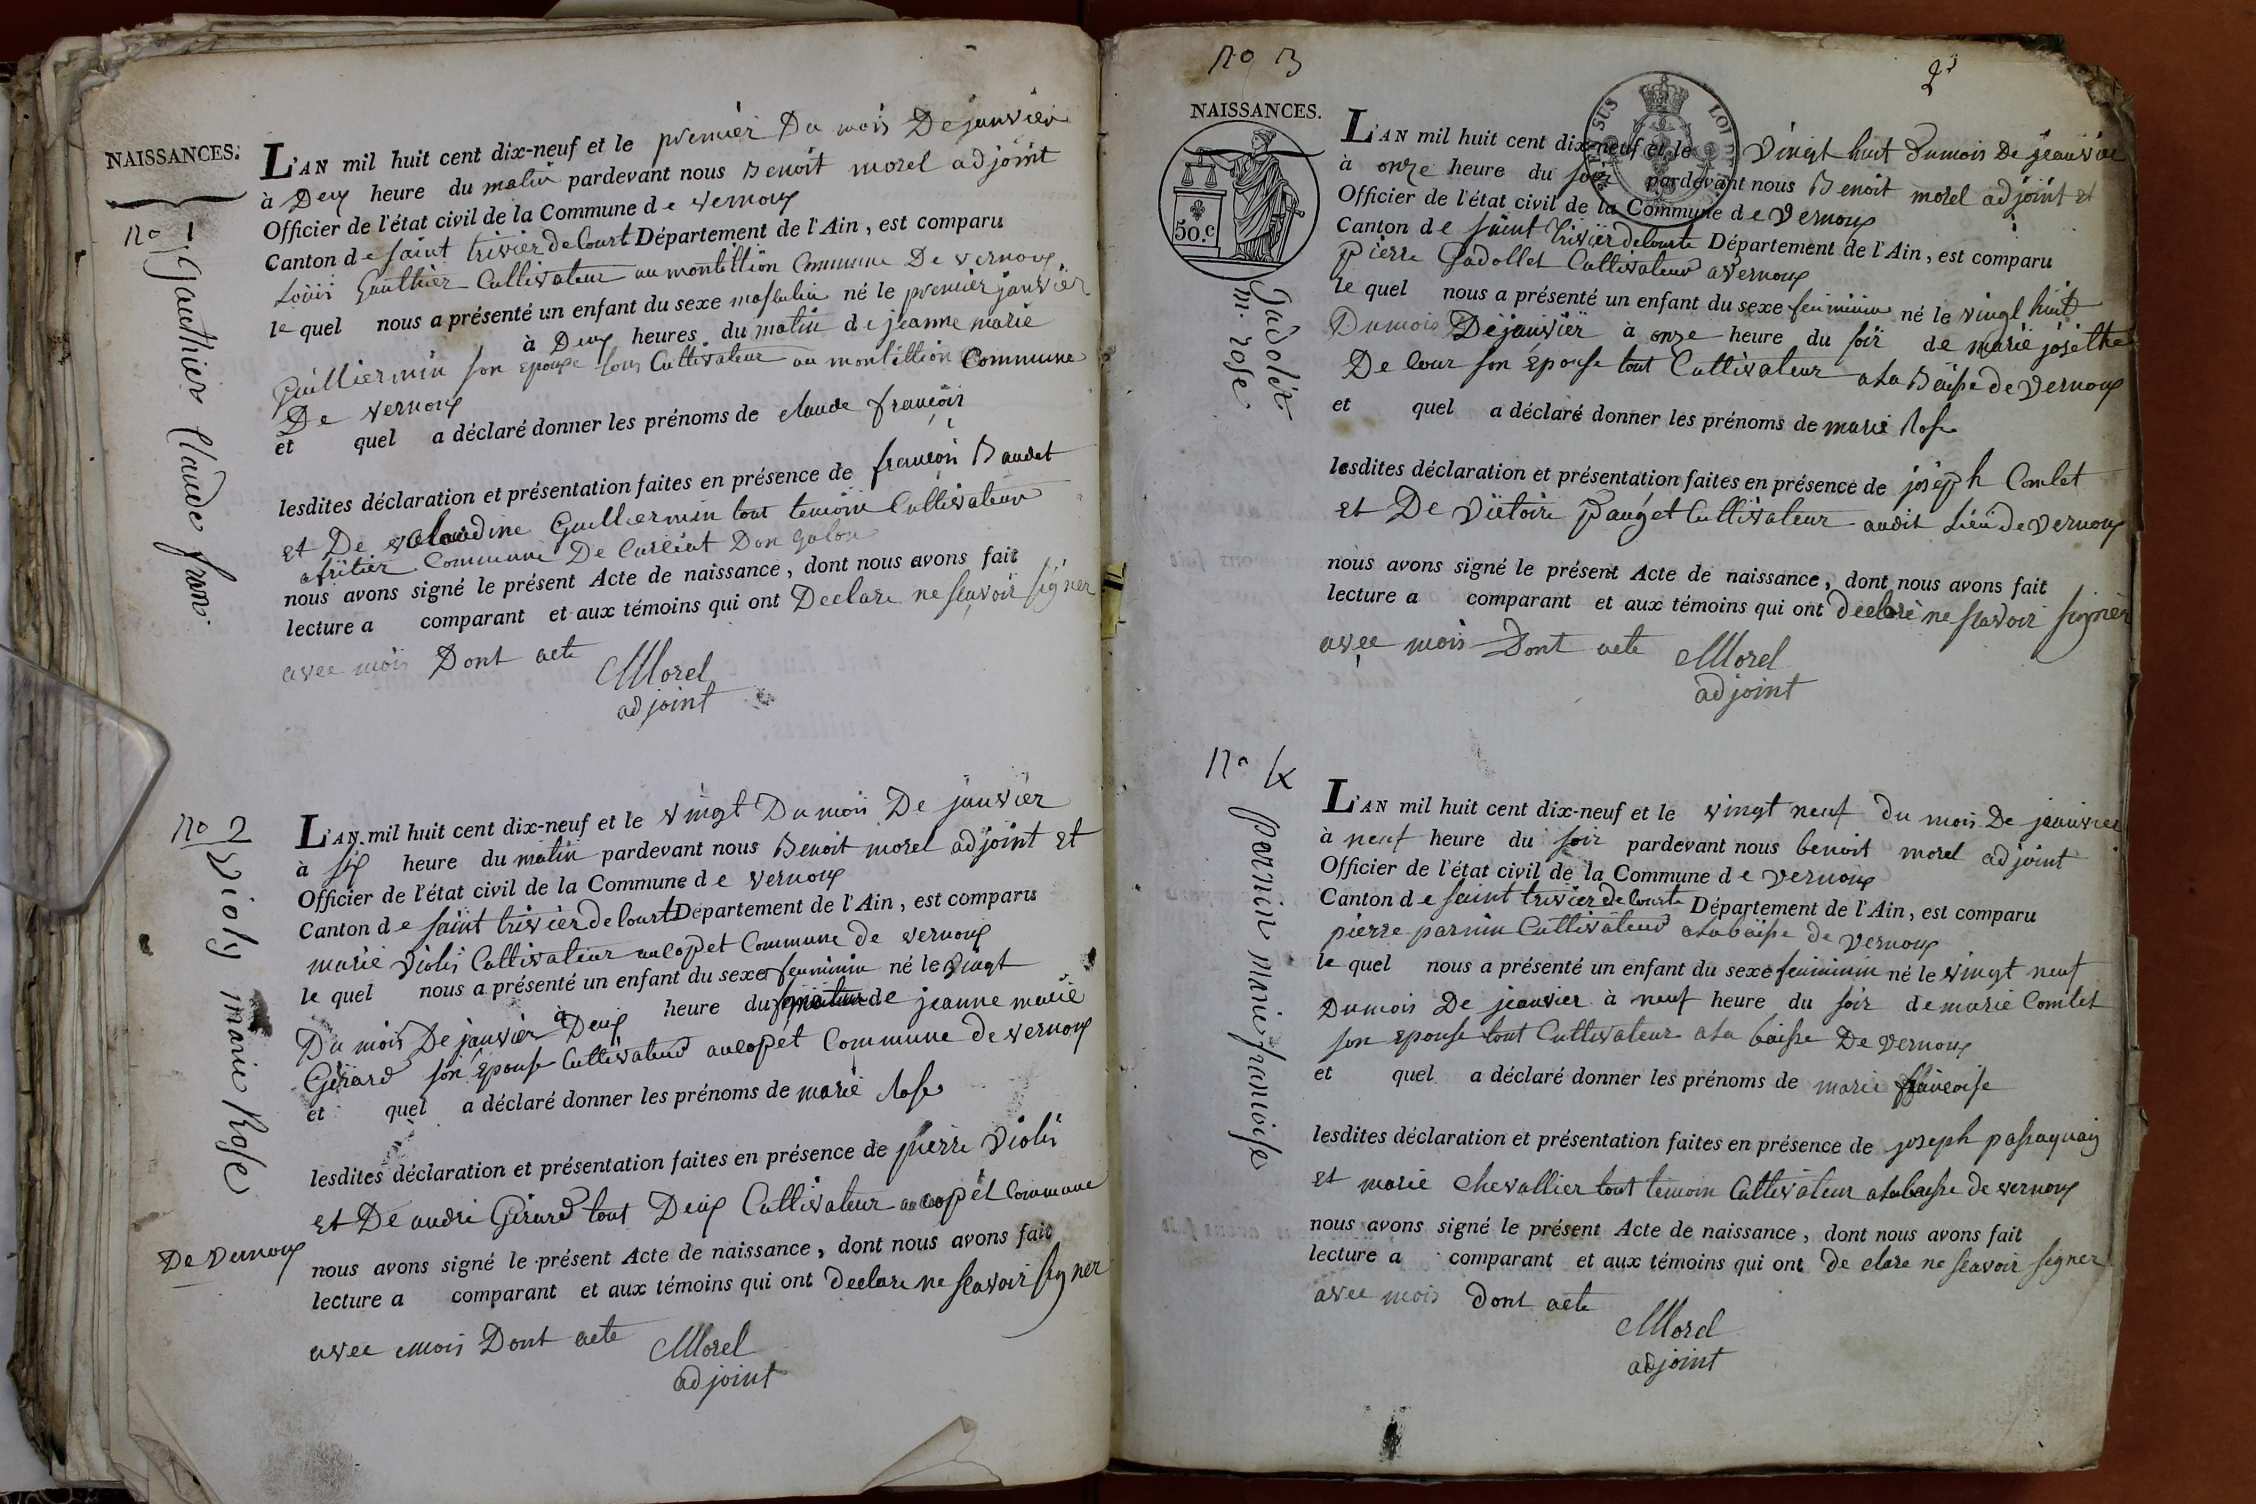 NAISSANCES.
no 1
Gauthier Claude fran.
L'AN mil huit cent dix-neuf et le premier Du mois De janvier
à Deux heure du matin pardevant nous Benoit morel adjoint
Officier de l'état civil de la Commune de vernoux
Canton de saint trivier de Court Département de l'Ain, est comparu
Louis Gauthier Cultivateur au montillion Commune De vernoux
le quel nous a présenté un enfant du sexe masculin né le premier janvier
à Deux heures du matin de jeanne marie
Guilliermin son epouse tous Cultivateur au montillion Commune
De vernoux
et quel a déclaré donner les prénoms de claude françois
lesdites déclaration et présentation faites en présence de françois Baudet
et De claudine Guilliermin tout temoin Cultivateur
Commune De Curciat Dongalon
nous avons signé le présent Acte de naissance, dont nous avons fait
lecture a comparant et aux témoins qui ont Declare ne sçavoir signer
avec mois Dont acte
Morel
adjoint
no 2
Violy marie Rose
L'AN mil huit cent dix-neuf et le vingt Du mois De janvier
à six heure du matin pardevant nous Benoit morel adjoint et
Officier de l'état civil de la Commune de vernoux
Canton de saint trivier de Court Département de l'Ain, est comparu
marie violis Cultivateur au copet Commune de vernoux
le quel nous a présenté un enfant du sexe feminin né le vingt
Du mois De janvier à Deux heure du de jeanne marie
Gérard son épouse Cultivateur au copet Commune de vernoux
et quel a déclaré donner les prénoms de marie Rose
lesdites déclaration et présentation faites en présence de pierre violis
et De andré Gérard tout Deux Cultivateur au copet Commune
De vernoux
nous avons signé le présent Acte de naissance, dont nous avons fait
lecture a comparant et aux témoins qui ont declare ne sçavoir signer
avec mois Dont acte
Morel
adjoint
no 3
2
NAISSANCES.
50.c
Gadolet
m. rose
L'AN mil huit cent dix-neuf et le vingt huit Du mois De jeanvier
à onze heure du soir pardevant nous Benoit morel adjoint et
Officier de l'état civil de la Commune de vernoux
Canton de saint trivier de Courte Département de l'Ain, est comparu
Pierre Gadollet Cultivateur a vernoux
le quel nous a présenté un enfant du sexe feminin né le vingt huit
Du mois De janvier à onze heure du soir de marie joséthe
De lour son épouse tout Cultivateur a la Baisse de vernoux
et quel a déclaré donner les prénoms de marie Rose
lesdites déclaration et présentation faites en présence de joseph Comlet
et De victoire Pauget Cultivateur audit lieu de vernoux
nous avons signé le présent Acte de naissance, dont nous avons fait
lecture a comparant et aux témoins qui ont declaré ne sçavoir signer
avec mois Dont acte
Morel
adjoint
no 4
pernin marie francoise
L'AN mil huit cent dix-neuf et le vingt neuf du mois De jeanvier
à neuf heure du soir pardevant nous benoit morel adjoint
Officier de l'état civil de la Commune de vernoux
Canton de saint trivier de Courte Département de l'Ain, est comparu
pierre parnin Cultivateur a la baisse de vernoux
le quel nous a présenté un enfant du sexe feminin né le vingt neuf
Du mois De jeanvier à neuf heure du soir de marie Comlet
son epouse tout Cultivateur a la baisse De vernoux
et quel a déclaré donner les prénoms de marie françoise
lesdites déclaration et présentation faites en présence de joseph passaquay
et marie chevallier tout temoin Cultivateur a la baisse de vernoux
nous avons signé le présent Acte de naissance, dont nous avons fait
lecture a comparant et aux témoins qui ont de clare ne sçavoir signer
avec mois Dont acte
Morel
adjoint